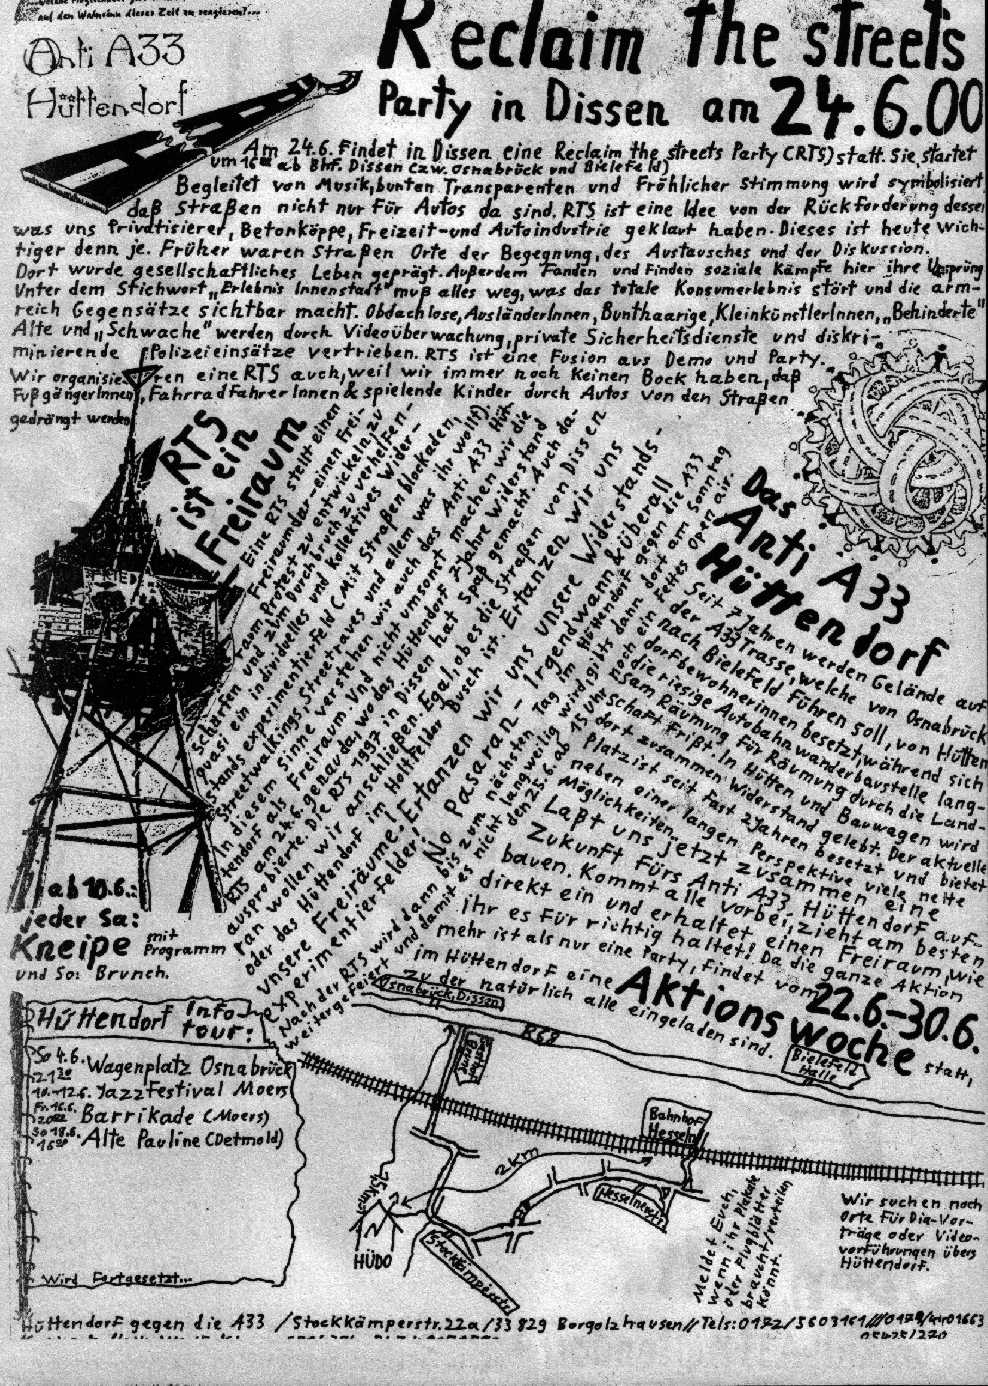 auf den Wahnsinn dieser Zeit zu reagieren...
Anti A33
Hüttendorf
Reclaim the streets
Party in Dissen am 24.6.00
Am 24.6. findet in Dissen eine Reclaim the streets Party (RTS) statt. Sie startet
um 16 ab Bhf. Dissen (zw. Osnabrück und Bielefeld)
Begleitet von Musik, bunten Transparenten und fröhlicher Stimmung wird symbolisiert
daß Straßen nicht nur für Autos da sind. RTS ist eine Idee von der Rückforderung dessen
was uns Privatisierer, Betonköppe, Freizeit- und Autoindustrie geklaut haben. Dieses ist heute wich-
tiger denn je. Früher waren Straßen Orte der Begegnung, des Austausches und der Diskussion.
Dort wurde gesellschaftliches Leben geprägt. Außerdem fanden und finden soziale Kämpfe hier ihre Ursprüng
Unter dem Stichwort „Erlebnis Innenstadt" muß alles weg, was das totale Konsumerlebnis stört und die arm-
reich Gegensätze sichtbar macht. Obdachlose, AusländerInnen, Bunthaarige, KleinkünstlerInnen, „Behinderte"
Alte und „Schwache" werden durch Videoüberwachung, private Sicherheitsdienste und diskri-
minierende Polizeieinsätze vertrieben. RTS ist eine Fusion aus Demo und Party.
Wir organisieren eine RTS auch, weil wir immer noch keinen Bock haben, daß
FußgängerInnen, FahrradfahrerInnen & spielende Kinder durch Autos von den Straßen
gedrängt werden
RTS
ist ein
Freiraum
Eine RTS stellt einen
Freiraum dar - einen Frei-
raum, Protest zu entwickeln, zu
schärfen und zum Durchbruch zu verhelfen -
quasi ein individuelles und kollektives Wider-
stands experimentierfeld (Mit Straßenblockaden,
Streetwalkings, Streetraves und allem was ihr wollt).
In diesem Sinne verstehen wir auch das Anti A33 Hüt-
tendorf als Freiraum. Und nicht umsonst machen wir die
RTS am 24.6. genau da, wo das Hüttendorf 2 Jahre Widerstand
ausprobierte. Die RTS 1997 in Dissen hat Spaß gemacht. Auch da-
ran wollen wir anschließen. Egal, ob es die Straßen von Dissen
oder das Hüttendorf im Holtfelder Busch ist. Ertanzen wir uns
unsere Freiräume! Ertanzen wir uns unsere Widerstands-
experimentierfelder! No Pasaran - Irgendwann & überall
Nach der RTS wird dann bis zum nächsten Tag im Hüttendorf gegen die A33
weitergefeiert und damit es nicht langweilig wird, gibts dann dort am Sonntag
den 25.6. ab 15 Uhr noch ein fettes Open air.
Das
Anti A33
Hüttendorf
Seit 7 Jahren werden Gelände auf
der A33 Trasse, welche von Osnabrück
nach Bielefeld führen soll, von Hütten
dorfbewohnerInnen besetzt, während sich
die riesige Autobahnwanderbaustelle lang-
sam Räumung für Räumung durch die Land-
schaft frißt. In Hütten und Bauwagen wird
dort zusammen Widerstand gelebt. Der aktuelle
Platz ist seit fast 2 Jahren besetzt und bietet
neben einer langen Perspektive viele nette
Möglichkeiten.
Laßt uns jetzt zusammen eine
Zukunft fürs Anti A33 Hüttendorf auf-
bauen. Kommt alle vorbei, zieht am besten
direkt ein und erhaltet einen Freiraum, wie
ihr es für richtig haltet! Da die ganze Aktion
mehr ist als nur eine Party, findet vom 22.6.-30.6.
im Hüttendorf eine Aktionswoche statt,
zu der natürlich alle eingeladen sind.
ab 10.6.:
jeder Sa:
Kneipe mit
Programm
und So: Brunch.
Hüttendorf Info-
tour:
So 4.6. Wagenplatz Osnabrück
21
10.-12.6. Jazzfestival Moers
Fr. 16.6. Barrikade (Moers)
20
So 18.6. Alte Pauline (Detmold)
16
Wird Fortgesetzt...
Osnabrück, Dissen
B68
Bielefeld
Halle
Bahnhof
Hesseln
2 km
Hesselner Str.
Stockkämperstr.
HÜDO
Meldet Euch,
wenn ihr Plakate
oder Flugblätter
braucht/verteilen
könnt.
Wir suchen noch
Orte für Dia-Vor-
träge oder Video-
vorführungen übers
Hüttendorf.
Hüttendorf gegen die A33 / Stockkämperstr. 22a / 33829 Borgholzhausen // Tels: 0172/5603161
05425/220